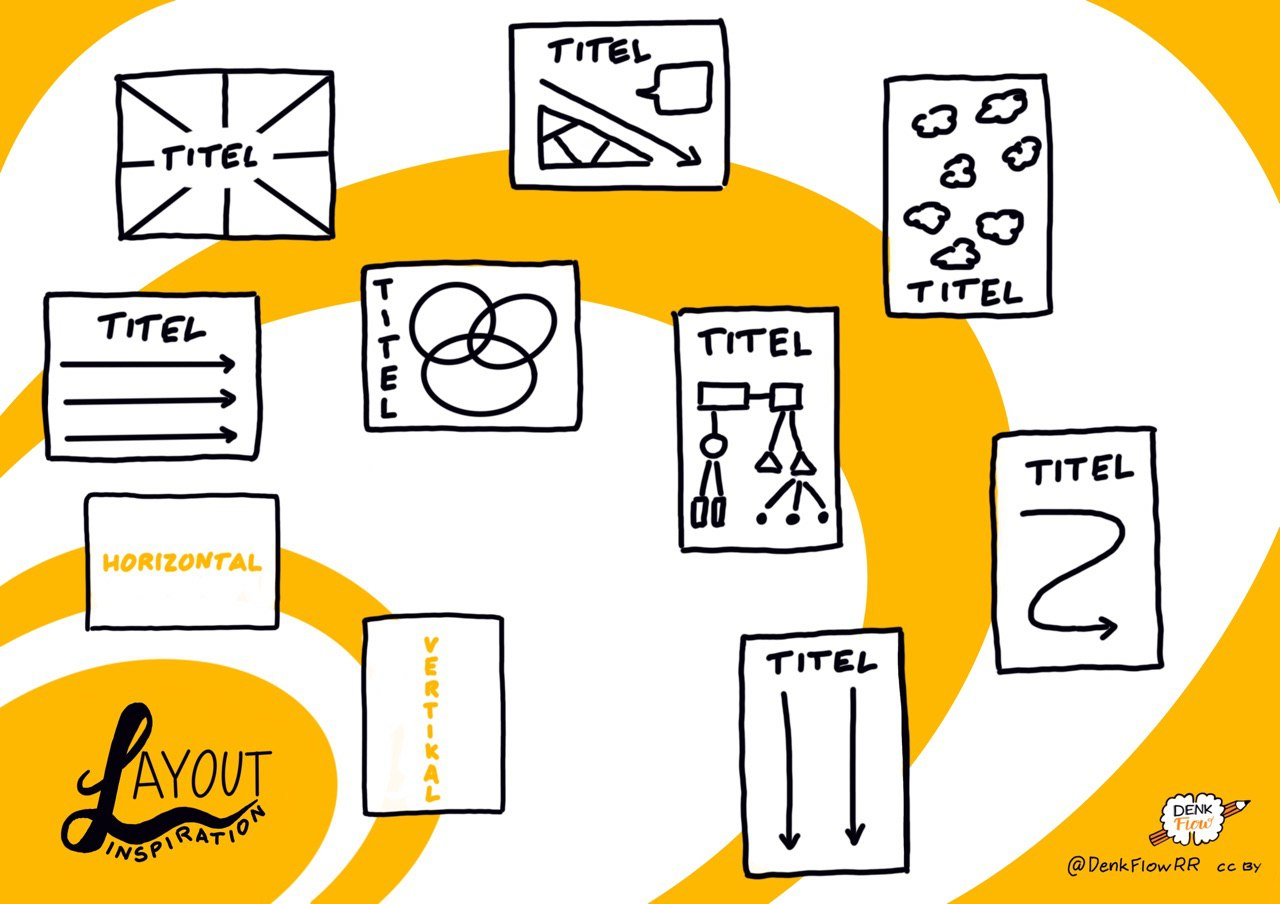 TITEL
TITEL
TITEL
TITEL
TITEL
TITEL
TITEL
HORIZONTAL
VERTIKAL
TITEL
LAYOUT
INSPIRATION
DENK
Flow
@DenkFlowRR CC BY